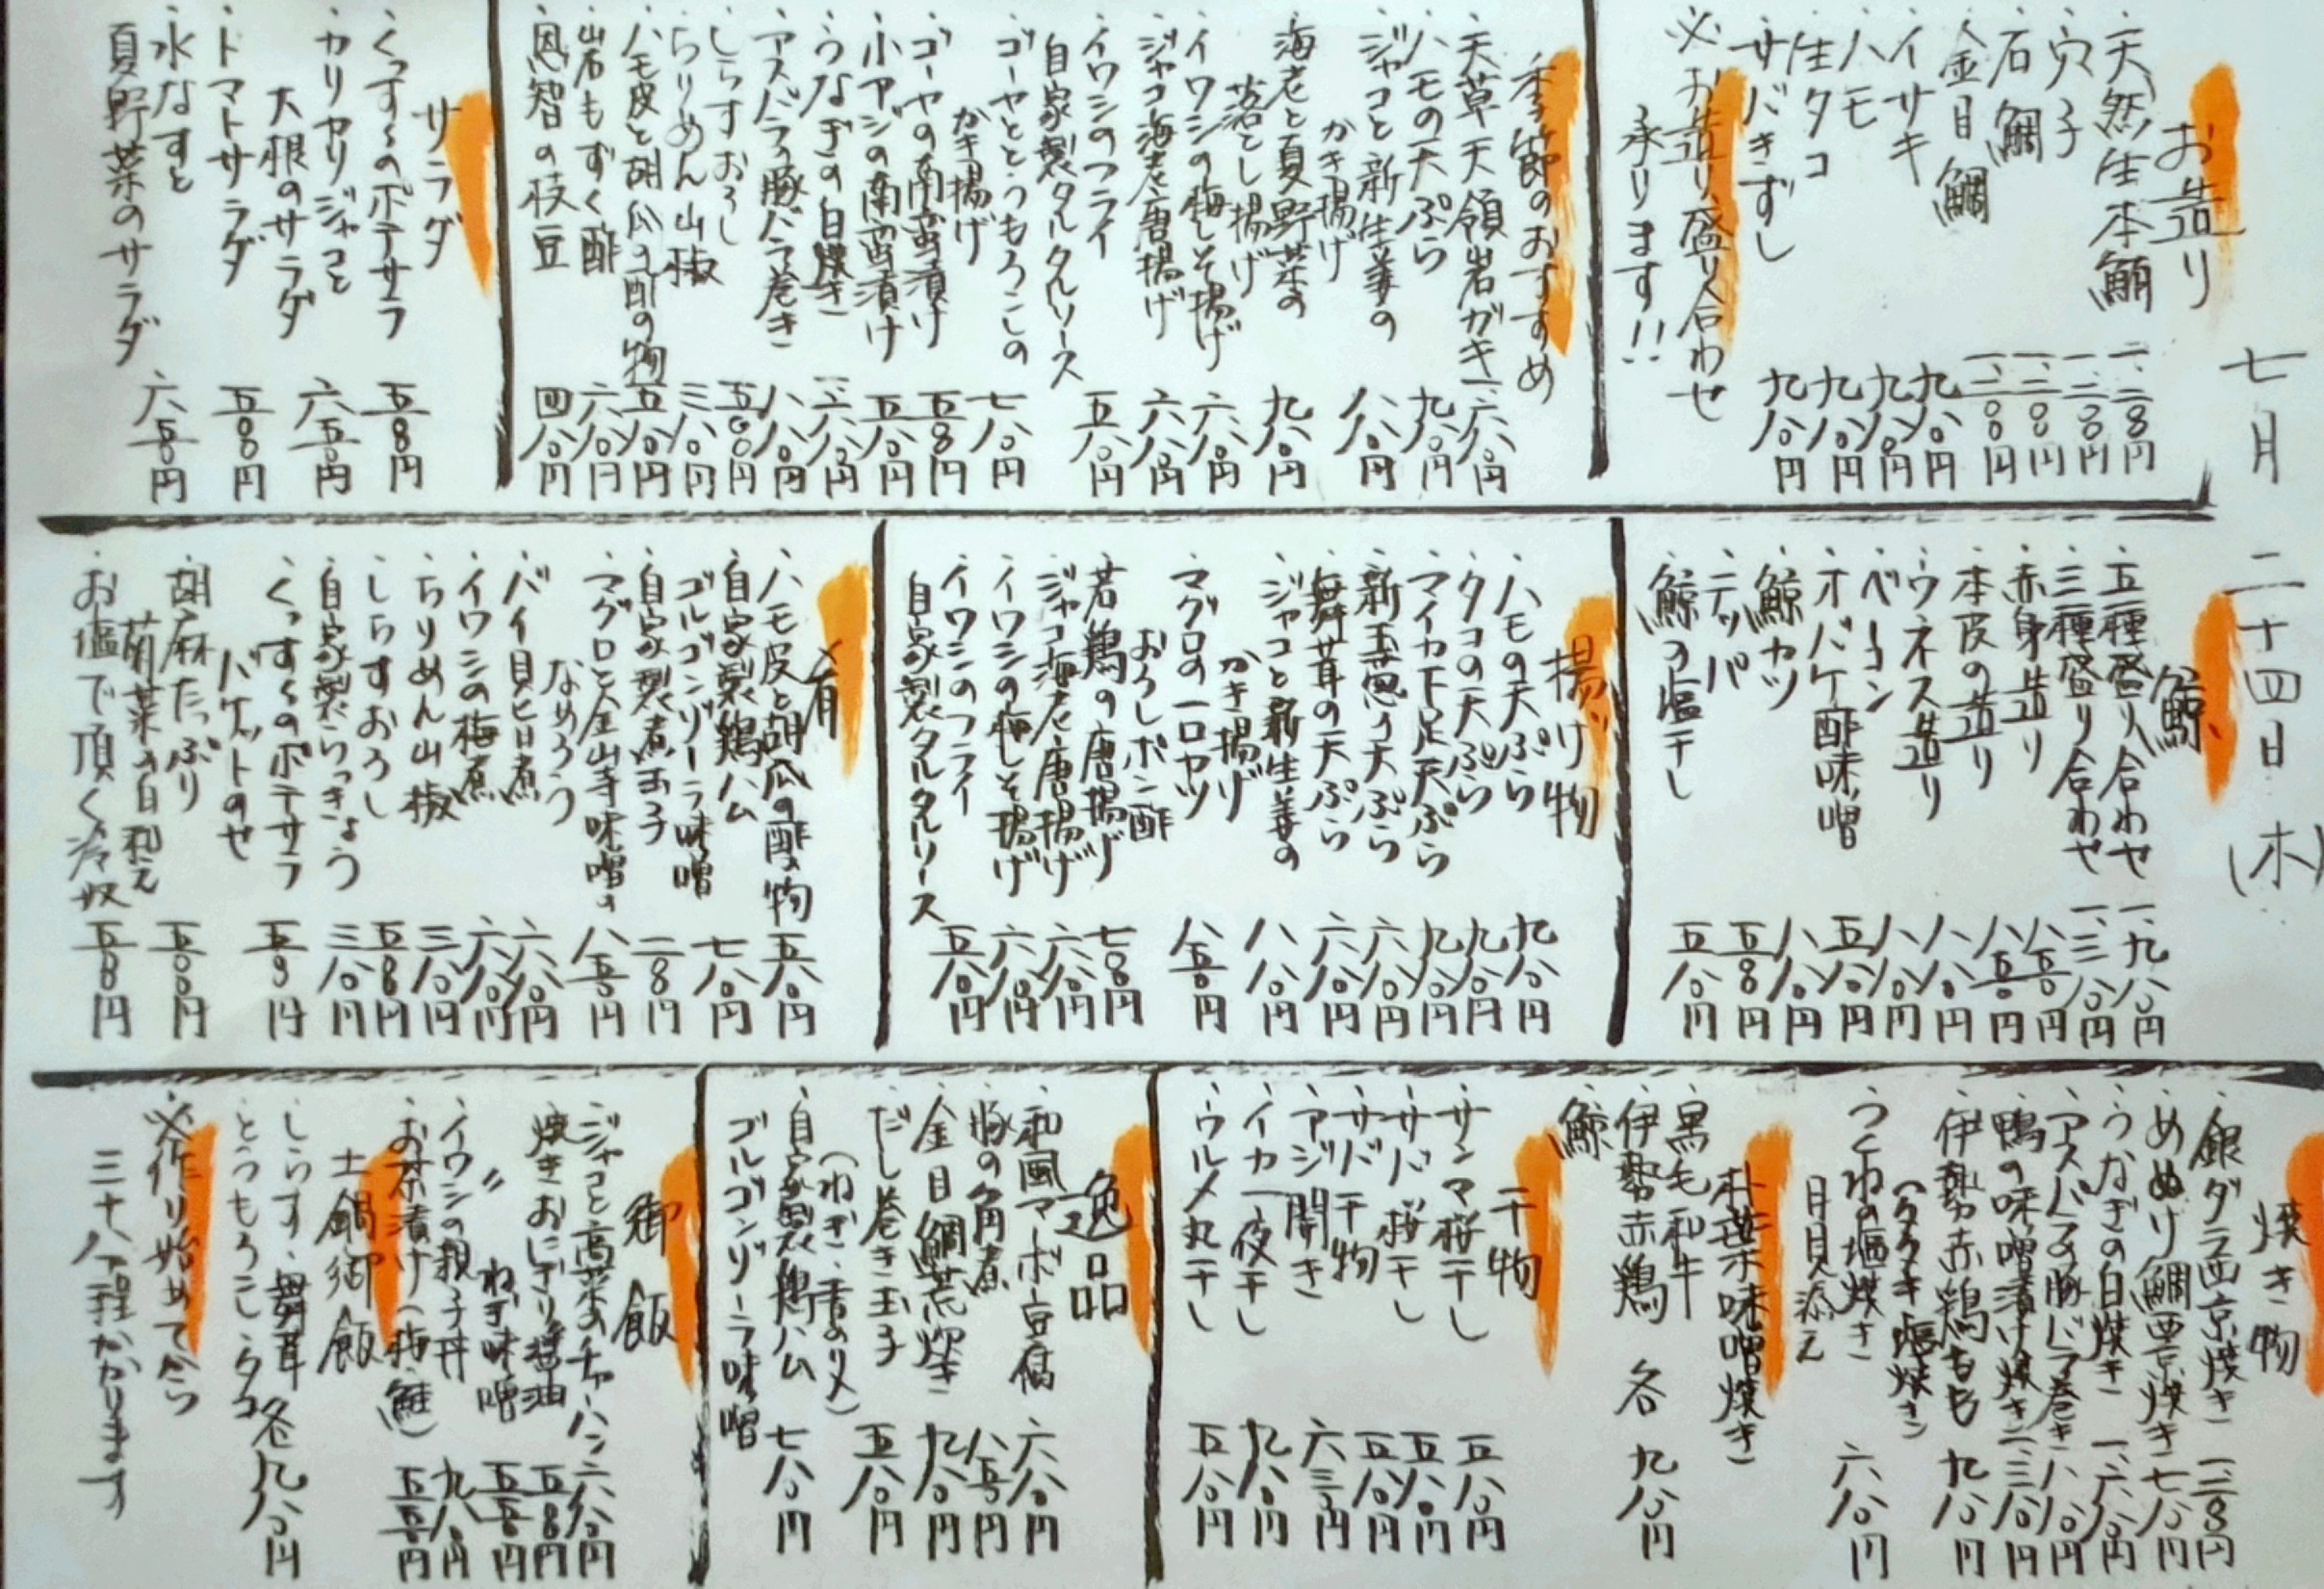 七月 二十四日 (木)
お造り
・天然生本鮪 一、二〇〇円
・穴子 一、二〇〇円
・石鯛 一、二〇〇円
・金目鯛 一、二〇〇円
・イサキ 九八〇円
・ハモ 九八〇円
・生タコ 九八〇円
・サバきずし 九八〇円
※お造り盛り合わせ
承ります!!
季節のおすすめ
・天草天領岩ガキ 一、六八〇円
・ハモの天ぷら 九八〇円
・ジャコと新生姜の
かき揚げ 八八〇円
・海老と夏野菜の
落とし揚げ 九八〇円
・イワシの梅しそ揚げ 六八〇円
・ジャコ海老唐揚げ 六八〇円
・イワシのフライ
自家製タルタルソース 五八〇円
・ゴーヤととうもろこしの
かき揚げ 七八〇円
・ゴーヤの南蛮漬け 五五〇円
・小アジの南蛮漬け 五八〇円
・うなぎの白焼き 一、六八〇円
・アスパラの豚バラ巻き 八八〇円
・しらすおろし 五〇〇円
・ちりめん山椒 三八〇円
・ハモ皮と胡瓜の酢の物 五八〇円
・岩もずく酢 六八〇円
・恩智の枝豆 四八〇円
サラダ
・くっすんのポテサラ 五五〇円
・カリカリジャコと
大根のサラダ 六五〇円
・トマトサラダ 五〇〇円
・水なすと
夏野菜のサラダ 六五〇円
鯨
・五種盛り合わせ 一、九八〇円
・三種盛り合わせ 一、三八〇円
・赤身造り 八五〇円
・本皮の造り 八五〇円
・ウネス造り 八八〇円
・ベーコン 八八〇円
・オバケ酢味噌 五八〇円
・鯨カツ 八八〇円
・テッパ 五五〇円
・鯨の塩干し 五八〇円
揚げ物
・ハモの天ぷら 九八〇円
・タコの天ぷら 九八〇円
・マイカ下足天ぷら 九八〇円
・新玉葱の天ぷら 六八〇円
・舞茸の天ぷら 六八〇円
・ジャコと新生姜の
かき揚げ 八八〇円
・マグロの一口カツ
おろしポン酢 八五〇円
・若鶏の唐揚げ 七〇〇円
・ジャコ海老唐揚げ 六八〇円
・イワシの梅しそ揚げ 六八〇円
・イワシのフライ
自家製タルタルソース 五八〇円
肴
・ハモ皮と胡瓜の酢の物 五八〇円
・自家製鶏ハム
ゴルゴンゾーラ味噌 七八〇円
・自家製煮玉子 二〇〇円
・マグロと金山寺味噌の
なめろう 八五〇円
・バイ貝旨煮 六八〇円
・イワシの梅煮 六八〇円
・ちりめん山椒 三八〇円
・しらすおろし 五〇〇円
・自家製らっきょう 三八〇円
・くっすんのポテサラ
バケットのせ 五五〇円
・胡麻たっぷり
菊菜の白和え 五五〇円
・お塩で頂く冷奴 五五〇円
焼き物
・銀ダラ西京焼き 一、二〇〇円
・めぬけ鯛西京焼き 七八〇円
・うなぎの白焼き 一、六八〇円
・アスパラの豚バラ巻き 八八〇円
・鴨の味噌漬け焼き 一、三八〇円
・伊勢赤鶏もも
(タタキ・塩焼き) 九八〇円
・つくねの塩焼き
月見添え 六八〇円
朴葉味噌焼き
・黒毛和牛
・伊勢赤鶏 各 九八〇円
・鯨
干物
・サンマ桜干し 五八〇円
・サバ桜干し 五八〇円
・サバ干物 五八〇円
・アジ開き 六三〇円
・イカ一夜干し 九八〇円
・ウルメ丸干し 五八〇円
逸品
・和風マーボ豆腐 六八〇円
・豚の角煮 八五〇円
・金目鯛荒炊き 九八〇円
・だし巻き玉子
(ねぎ・青のり) 五八〇円
・自家製鶏ハム
ゴルゴンゾーラ味噌 七八〇円
御飯
・ジャコと高菜のチャーハン 六八〇円
・焼きおにぎり醤油 五五〇円
・〃 ねぎ味噌 五五〇円
・イワシの親子丼 九八〇円
・お茶漬け(梅・鮭) 五五〇円
土鍋御飯
・しらす・舞茸
・とうもろこし・タコ 各九八〇円
※作り始めてから
三十八分程かかります